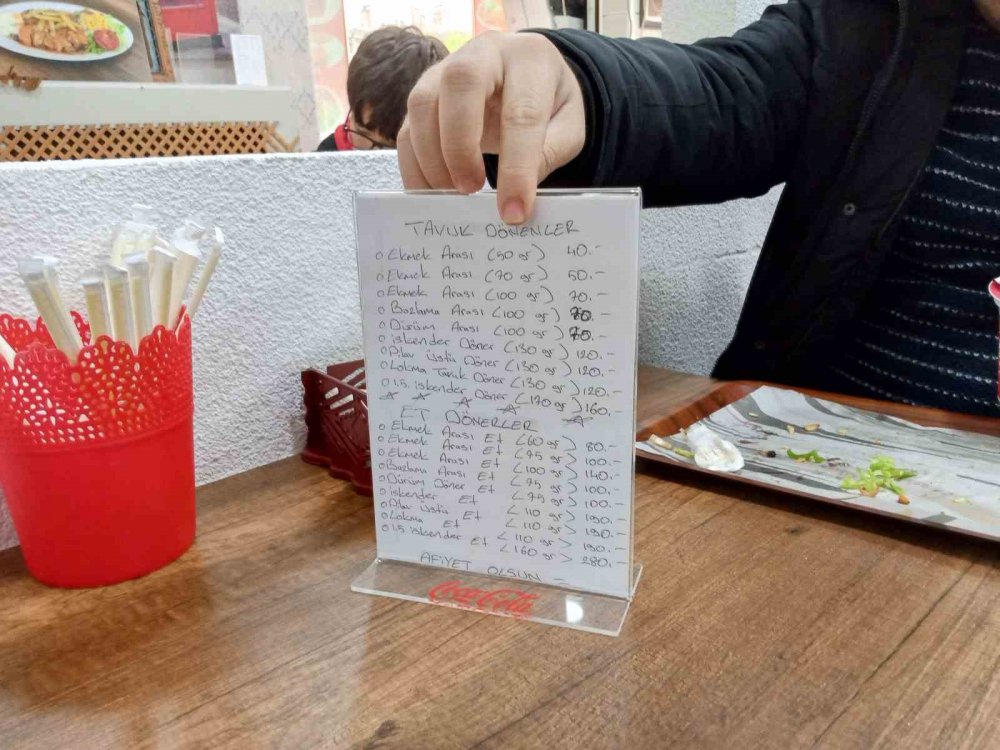 TAVUK DÖNENLER
o Ekmek Arası (50 gr) 40.-
o Ekmek Arası (70 gr) 50.-
o Ekmek Arası (100 gr) 70.-
o Bazlama Arası (100 gr) 70.-
o Dürüm Arası (100 gr) 70.-
o iskender Döner (130 gr) 120.-
o Pilav Üstü Döner (130 gr) 120.-
o Lokma Tavuk Döner (130 gr) 120.-
o 1.5. iskender Döner (170 gr) 160.-
ET DÖNERLER
o Ekmek Arası Et <60 gr> 80.-
o Ekmek Arası Et <75 gr> 100.-
o Ekmek Arası Et <100 gr> 140.-
o Bazlama Arası Et <75 gr> 100.-
o Dürüm Döner Et <75 gr> 100.-
o iskender Et <110 gr> 190.-
o Pilav Üstü Et <110 gr> 190.-
o Lokma Et <110 gr> 190.-
o 1.5 iskender Et <160 gr> 280.-
AFİYET OLSUN -
Coca-Cola